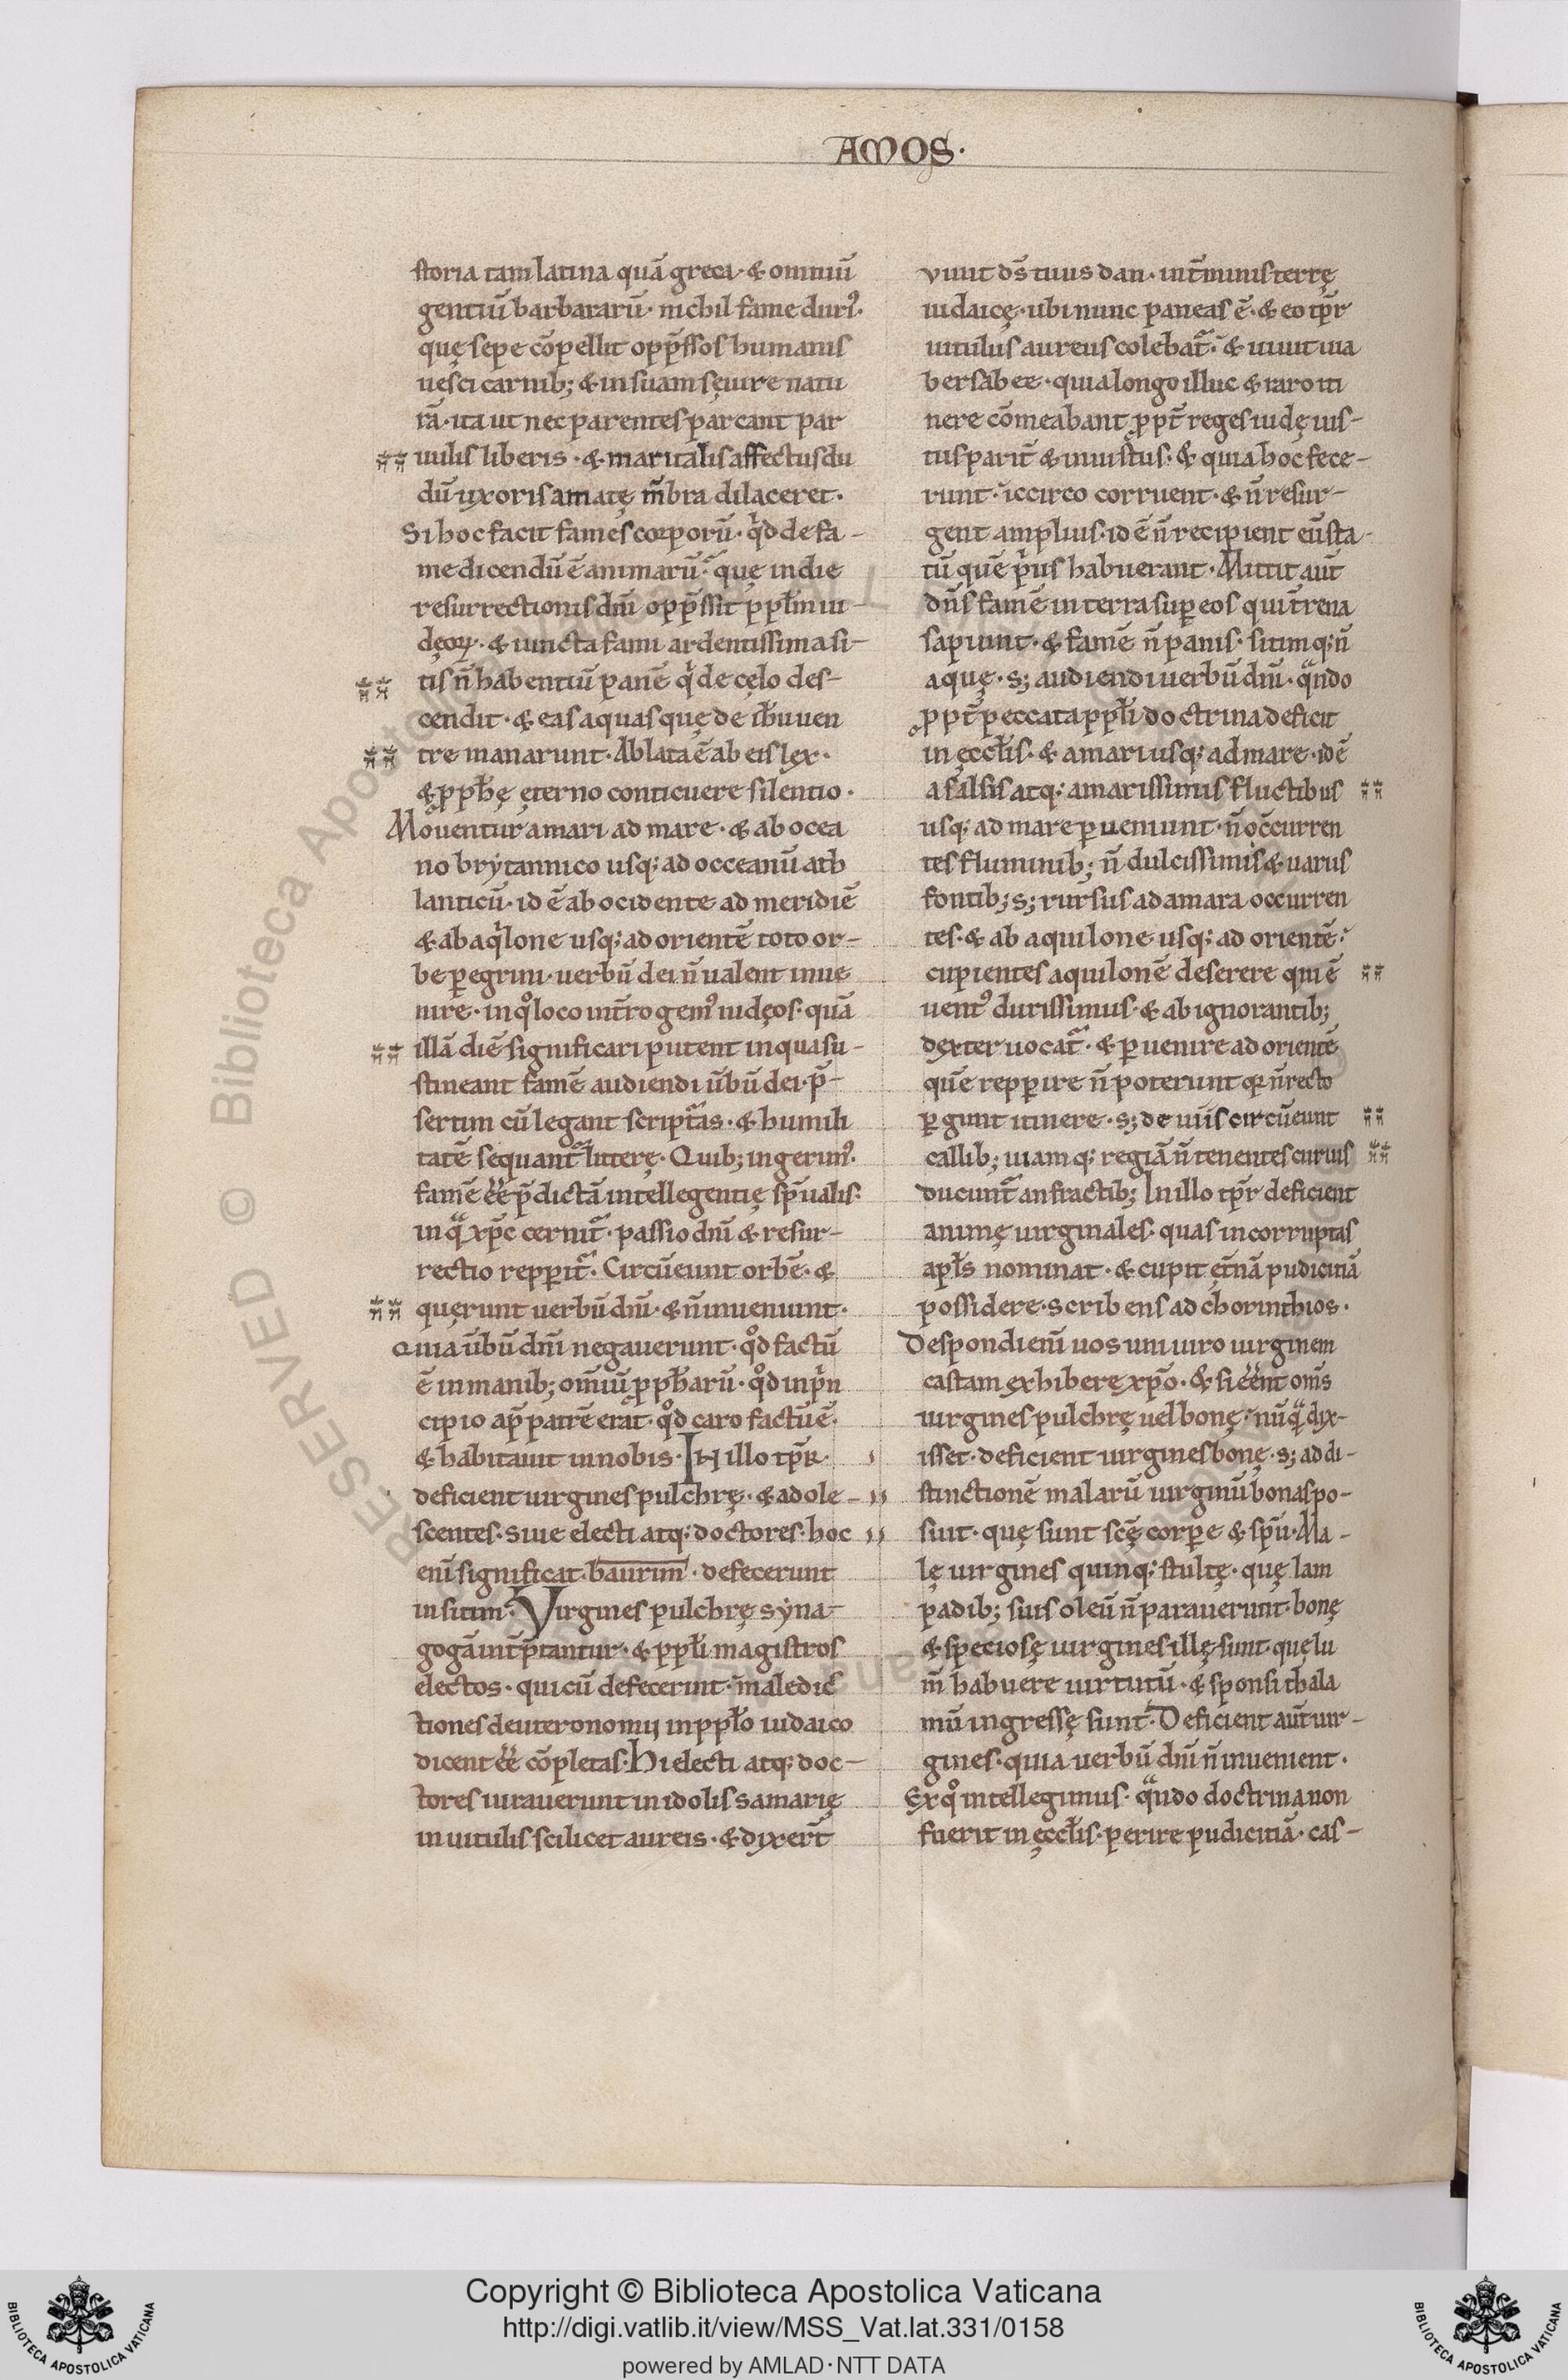 AMOS·
storia tam latina quā greca· & omniū
gentiū barbararū· nichil fame duri᾽·
quę sepe cōpellit opp̄ssos humanis
uesci carnib; & in suam sęuire natu
rā· ita ut nec parentes parcant par
uulis liberis· & maritalis affectus du
dū uxoris amatę mbra dilaceret·
Si hoc facit fames corporū· qd de fa-
me dicendū ē animarū· quę in die
resurrectionis dn̄i opp̄ssit ppl̄m iu-
dęoꝝ· & iuncta fami ardentissima si-
tis n̄ habentiū panē q de cęlo des-
cendit· & eas aquas quę de ih̄u uen
tre manarunt· Ablata ē ab eis lex·
& pph̄ę ęterno conticuere silentio·
Mouentur a mari ad mare· & ab ocea
no brytannico usq; ad occeanū ath
lanticū· id ē ab ocidente ad meridiē
& ab aqlone usq; ad orientē toto or-
be peregrini· uerbū dei n̄ ualent inue
nire· in qo loco int̄rogem᾽ iudęos· quā
illā diē significari putent in qua su-
stineant famē audiendi ūbū dei· p̄-
sertim cū legant script̄as· & humili
tatē sequant̄ litterę· Quib; ingerim᾽·
famē ēē p̄dictā intellegentię sp̄ualis·
in qa xp̄c cernit̄· passio dn̄i & resur-
rectio repperit̄· Circūeunt orbē· &
quęrunt uerbū dn̄i· & n̄ inueniunt·
Quia ūbū dn̄i negauerunt· qd factū
ē in manib; om̄iū pph̄arū· qd in prin
cipio ap̄ patrē erat· qd caro factū ē·
& habitauit in nobis· IN illo tp̄r·
deficient uirgines pulchrę· & adole-
scentes· siue electi atq; doctores· hoc
eni significat· baurim· defecerunt
in sitim· Virgines pulchrę syna-
gogā int̄p̄tantur· & ppl̄i magistros
electos· qui cū defecerint· maledic
tiones deuteronomij in ppl̄o iudaico
dicent ēē cōpletas· Hi electi atq; doc-
tores iurauerunt in idolis samarię
in uitulis scilicet aureis· & dixer̄t
viuit ds̄ tuus dan· in t̄minis terrę
iudaicę· ubi nunc paneas ē· & eo tp̄r
uitulus aureus colebat̄· & uiuit uia
bersabee· quia longo illuc & raro iti
nere cōmeabant ppt̄ reges iudę ius-
tus parit̄ & iniustus· & quia hoc fece-
runt· iccirco corruent· & n̄ resur-
gent amplius· id ē n̄ recipient eū sta-
tū quē prius habuerant· Mittit aut̄
dn̄s famē in terra sup eos qui t̄rena
sapiunt· & famē n̄ panis· sitimq; n̄
aquę· s; audiendi uerbū dn̄i· qando
ppt̄ peccata ppl̄i doctrina deficit
in ęccl̄is· & a mari usq; ad mare· id ē
a salsis atq; amarissimis fluctibus
usq; ad mare pueniunt· n̄ occurren
tes fluminib; n̄ dulcissimis & uariis
fontib; s; rursus ad amara occurren
tes· & ab aquilone usq; ad orientē·
cupientes aquilonē deserere qui ē
uent᾽ durissimus· & ab ignorantib;
dexter uocat̄· & puenire ad orientē
quē repperire n̄ poterunt qr n̄ recto
pergunt itinere· s; de uiis circūeunt
callib; uiamq; regiā n̄ tenentes curuis
ducunt̄ anfractib; In illo tp̄r deficient
animę uirginales· quas incorruptas
apl̄s nominat· & cupit ęt̄nā pudicitiā
possidere· scribens ad chorinthios·
Despondi eni uos uni uiro uirginem
castam exhibere xp̄o· & si ēent om̄s
uirgines pulchrę uel bonę· nūqa dix-
isset· deficient uirgines bonę· s; ad di-
stinctionē malarū uirginū bonas po-
suit· quę sunt sc̄ę corpe & sp̄u· Ma-
lę uirgines quinq; stultę· quę lam
padib; suis oleū n̄ parauerunt· bonę
& speciosę uirgines illę sunt· quę lu
m̄ habuere uirtutū· & sponsi thala
mū ingressę sunt· Deficient aut̄ uir-
gines· quia uerbū dn̄i n̄ inuenient·
Ex qo intellegimus· qando doctrina non
fuerit in ęccl̄is· perire pudicitiā· cas-
RESERVED © Biblioteca Apostolica Vaticana
Copyright © Biblioteca Apostolica Vaticana
http://digi.vatlib.it/view/MSS_Vat.lat.331/0158
powered by AMLAD·NTT DATA
BIBLIOTECA APOSTOLICA VATICANA
BIBLIOTECA APOSTOLICA VATICANA